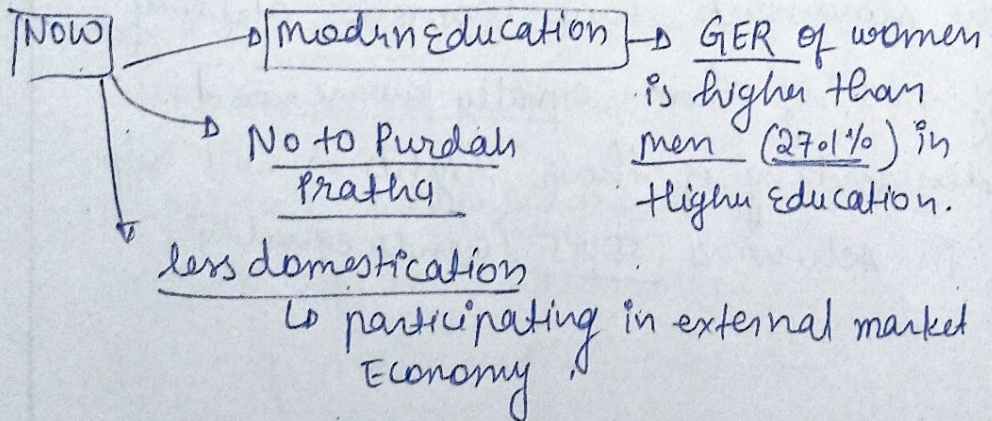 Now → Modern Education → GER of women
is higher than
men (27.1%) in
Higher Education.
→ No to Purdah
Pratha
→ less domestication
↳ participating in external market
Economy.